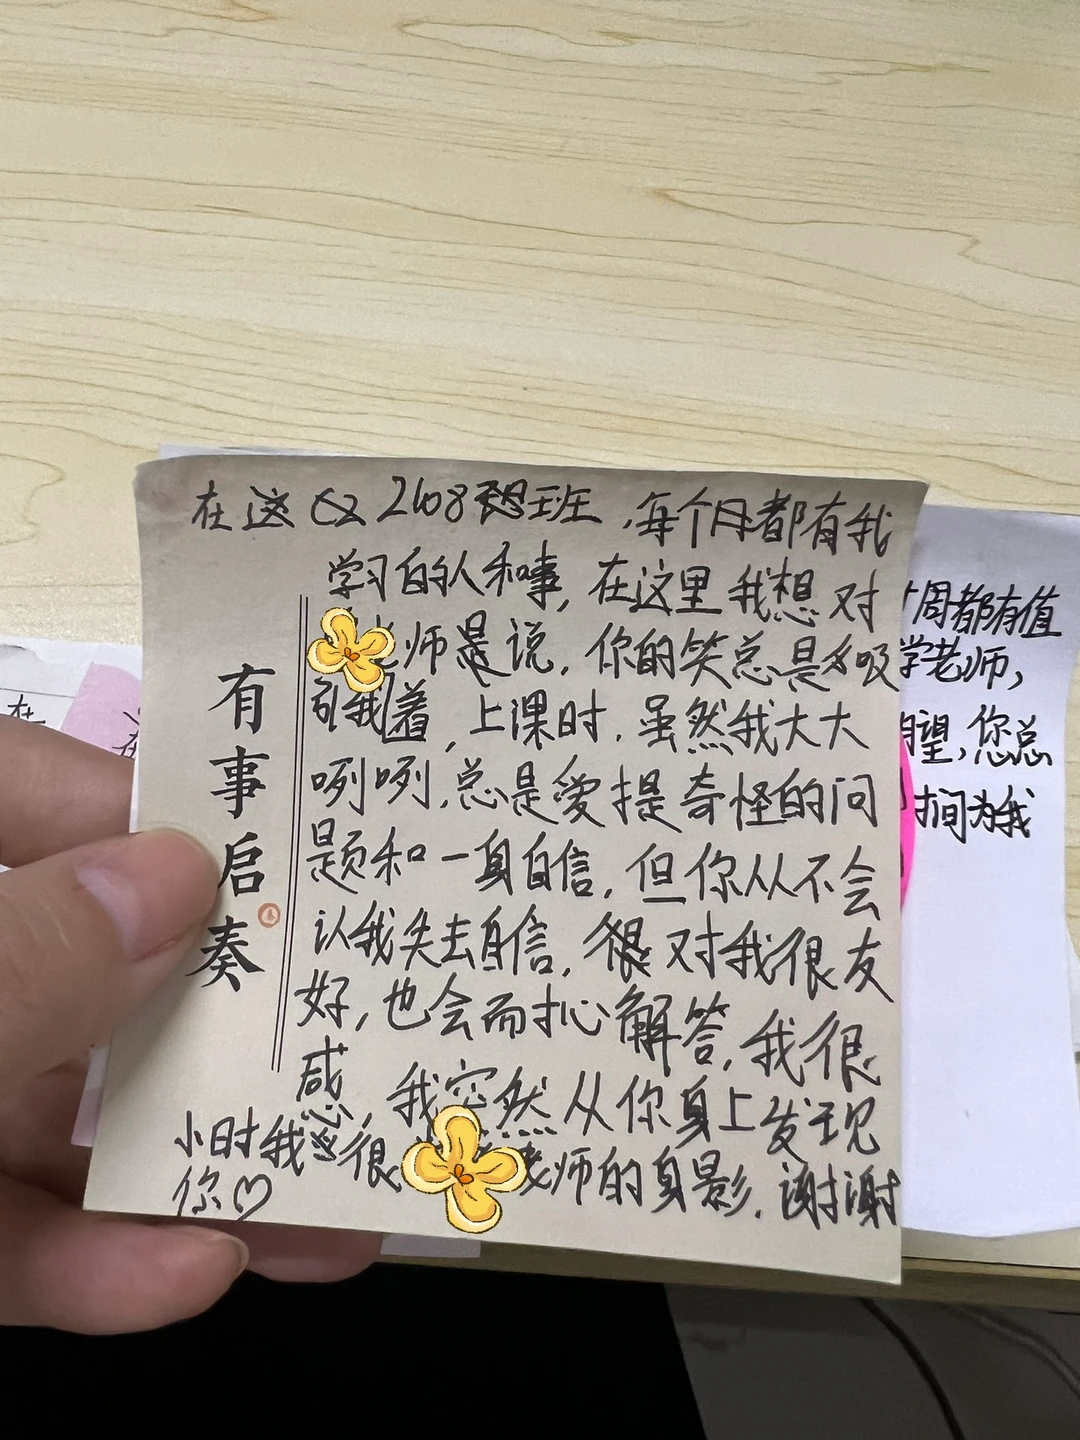 在这 2108班，每个月都有我
学习的人和事，在这里我想对
老师是说，你的笑总是吸
引我着，上课时，虽然我大大
咧咧，总是爱提奇怪的问
题和一身自信，但你从不会
认我失去自信，很对我很友
好，也会而扌心解答，我很
感，我突然从你身上发现
小时我很 老师的身影，谢谢
你♡
有事启奏
周都有值
学老师，
望，您总
间为我
在